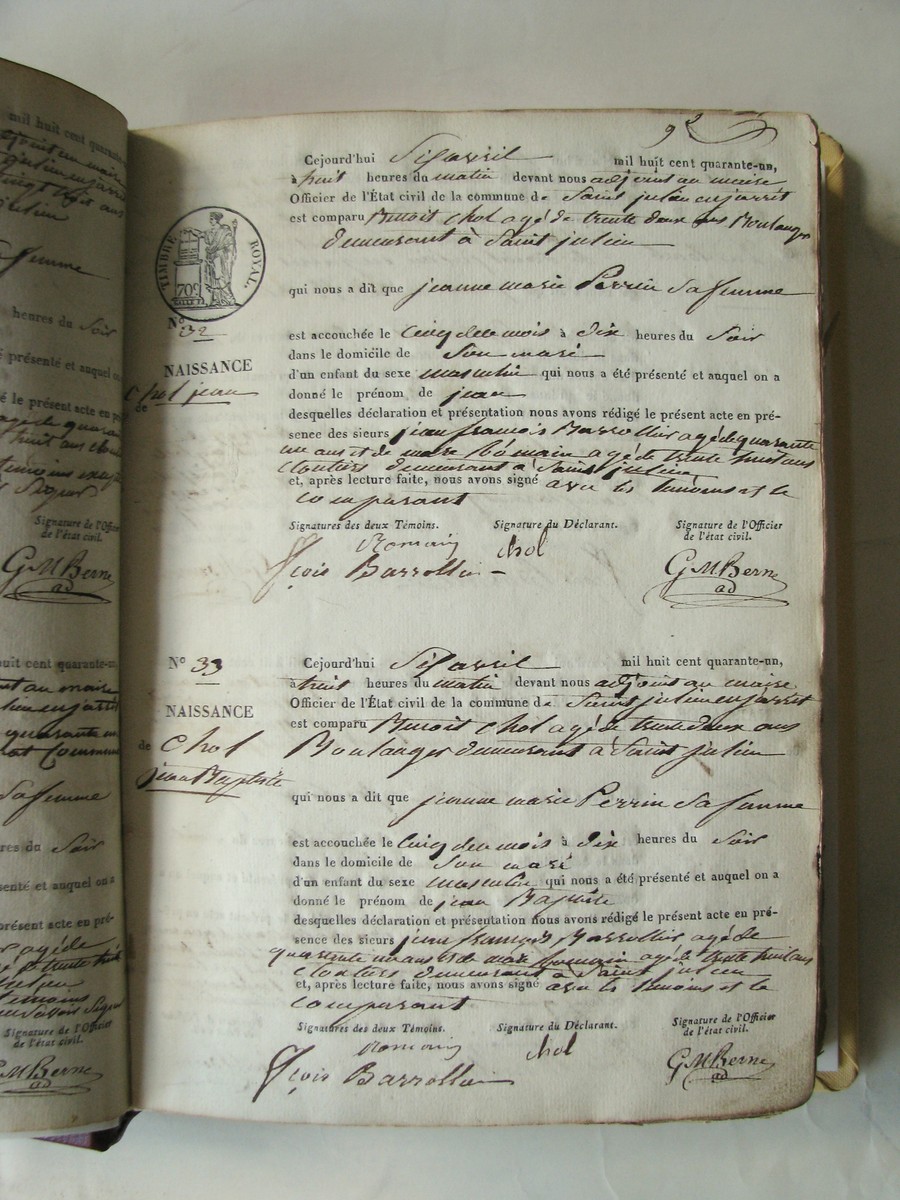 mil huit cent quarante-
heures du Soir
é présenté et auquel on
é le présent acte en pré
Signature de l'Officier
de l'état civil.
GMBerne
ad
uit cent quarante-un,
sa femme
res du Soir
senté et auquel on a
présent acte en pré-
Signature de l'Officier
de l'état civil.
GMBerne
ad
9
TIMBRE ROYAL.
709
Cejourd'hui Six avril mil huit cent quarante-un,
à huit heures du matin devant nous adjoint au maire
Officier de l'État civil de la commune de Saint julien en jarret
est comparu Benoit Chol agé de trente deux ans Boulanger
demeurant à Saint julien
qui nous a dit que jeanne marie Perrin Sa femme
N° 32
est accouchée le Cinq de ce mois à Dix heures du Soir
dans le domicile de Son mari
NAISSANCE
d'un enfant du sexe masculin qui nous a été présenté et auquel on a
de Chol jean
donné le prénom de jean
desquelles déclaration et présentation nous avons rédigé le présent acte en pré-
sence des sieurs jean françois Bazzollin agé de quarante
un ans et de marc Romain agé de trente huit ans
Cloutiers demeurant à Saint julien
et, après lecture faite, nous avons signé avec les temoins et le
comparant
Signatures des deux Témoins. Signature du Déclarant. Signature de l'Officier
de l'état civil.
Romain Chol GMBerne
fçois Bazzollin ad
N° 33
Cejourd'hui Six avril mil huit cent quarante-un,
à huit heures du matin devant nous adjoint au maire
Officier de l'État civil de la commune de Saint julien en jarret
NAISSANCE
est comparu Benoit Chol agé de trente deux ans
de Chol
Boulanger demeurant à Saint julien
jean Baptiste
qui nous a dit que jeanne marie Perrin Sa femme
est accouchée le Cinq de ce mois à Dix heures du Soir
dans le domicile de Son mari
d'un enfant du sexe masculin qui nous a été présenté et auquel on a
donné le prénom de jean Baptiste
desquelles déclaration et présentation nous avons rédigé le présent acte en pré-
sence des sieurs jean françois Bazzollin agé de
quarante un ans et de marc Romain agé de trente huit ans
Cloutiers demeurant à Saint julien
et, après lecture faite, nous avons signé avec les temoins et le
comparant
Signatures des deux Témoins. Signature du Déclarant. Signature de l'Officier
de l'état civil.
Romain Chol GMBerne
fçois Bazzollin ad